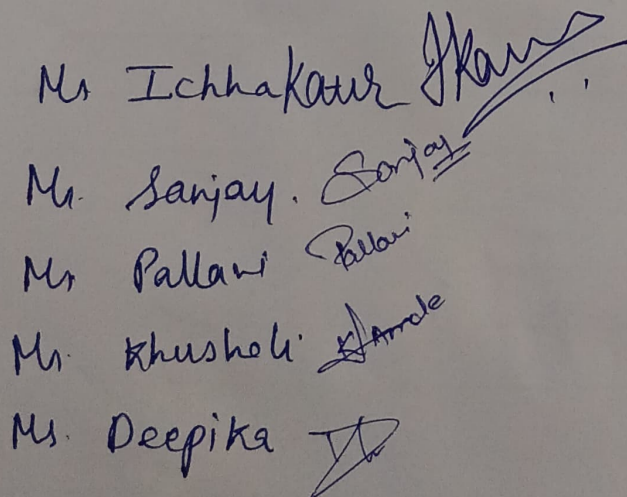 Ms Ichha Kaur IKaur
Mr. Sanjay. Sanjay
Ms Pallavi Pallavi
Ms. Khushali
Ms. Deepika